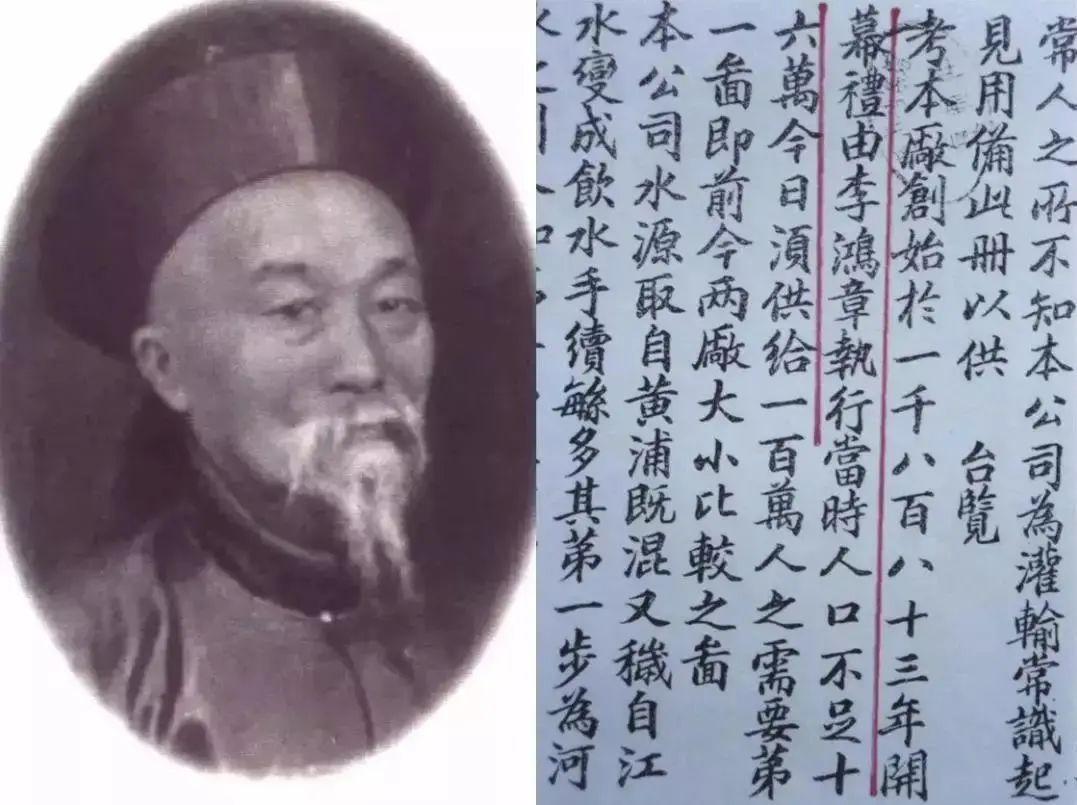 常人之所不知本公司為灌輸常識起
見用備此冊以供 台覽
考本廠創始於一千八百八十三年開
幕禮由李鴻章執行當時人口不足十
六萬今日湏供給一百萬人之需要第
一啚即前今两廠大小比較之啚
本公司水源取自黄浦既混又穢自江
水變成飲水手續緐多其第一步為河